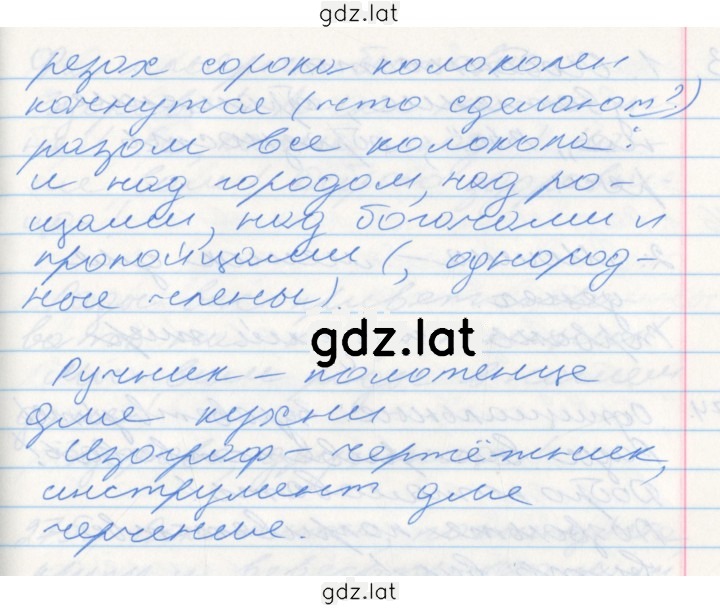 gdz.lat
резах сорока колоколен
качнутся (что сделают?)
разом все колокола:
и над городом, над ро-
щами, над богачами и
пропойцами (, однород-
ные члены).
gdz.lat
Ручник – полотенце
для кухни
Изограф – чертёжник,
инструмент для
черчения.
gdz.lat